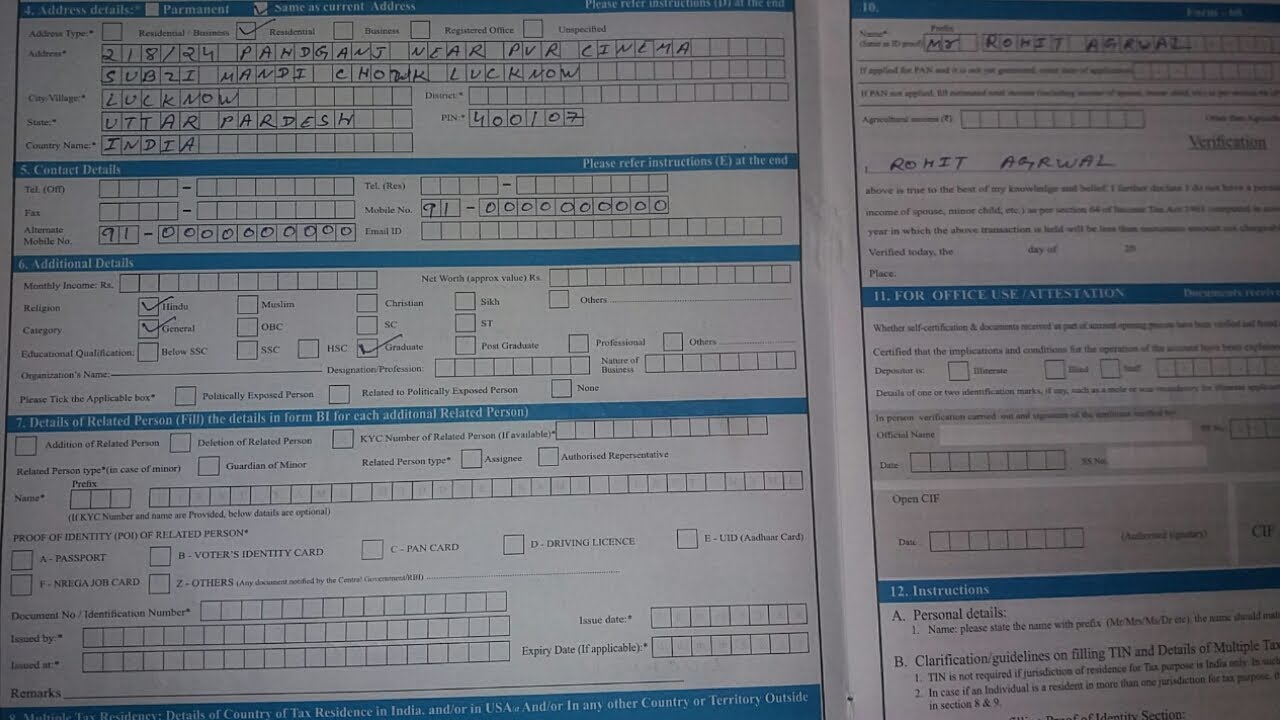 4. Address details:* Parmanent Same as current Address Please refer instructions (D) at the end
Address Type:* Residential / Business Residential Business Registered Office Unspecified
Address* 218/24 PANDGANJ NEAR PVR CINEMA
SUBZI MANDI CHOWK LUCKNOW
City/Village:* LUCKNOW District:*
State:* UTTAR PARDESH PIN:* 400107
Country Name:* INDIA
5. Contact Details Please refer instructions (E) at the end
Tel. (Off) Tel. (Res)
Fax Mobile No. 91-0000000000
Alternate Mobile No. 91-0000000000 Email ID
6. Additional Details
Monthly Income: Rs. Net Worth (approx value) Rs.
Religion Hindu Muslim Christian Sikh Others
Category General OBC SC ST
Educational Qualification: Below SSC SSC HSC Graduate Post Graduate Professional Others
Organization's Name: Designation/Profession: Nature of Business
Please Tick the Applicable box* Politically Exposed Person Related to Politically Exposed Person None
7. Details of Related Person (Fill) the details in form BI for each additonal Related Person)
Addition of Related Person Deletion of Related Person KYC Number of Related Person (If available)*
Related Person type*(in case of minor) Guardian of Minor Related Person type* Assignee Authorised Repersentative
Prefix
Name*
(If KYC Number and name are Provided, below datails are optional)
PROOF OF IDENTITY (POI) OF RELATED PERSON*
A - PASSPORT B - VOTER'S IDENTITY CARD C - PAN CARD D - DRIVING LICENCE E - UID (Aadhaar Card)
F - NREGA JOB CARD Z - OTHERS (Any document notified by the Central Government/RBI)
Document No / Identification Number* Issue date:*
Issued by:*
Issued at:* Expiry Date (If applicable):*
Remarks
8. Multiple Tax Residency: Details of Country of Tax Residence in India, and/or in USA or And/Or In any other Country or Territory Outside
10. Form - 60
Prefix
Name* (Same as ID proof) Mr ROHIT AGRWAL
If applied for PAN and it is not yet generated, enter date of application
If PAN not applied, fill estimated total income
Agricultural income (₹)
Verification
I, ROHIT AGRWAL
above is true to the best of my knowledge and belief. I further declare I do not have a
income of spouse, minor child, etc.) as per section 64 of Income Tax Act 1961 computed in
year in which the above transaction is held will be less than maximum amount not
Verified today, the day of 20
Place.
11. FOR OFFICE USE /ATTESTATION Documents
Whether self-certification & documents received as part of account opening process have been verified and
Certified that the implications and conditions for the operation of the account have been
Depositor is: Illiterate Blind Staff
Details of one or two identification marks, if any, such as a mole or scar
In person verification carried out and signature of the
Official Name
Date SS No.
Open CIF
Date (Authorised signatory) CIF
12. Instructions
A. Personal details:
1. Name: please state the name with prefix (Mr/Mrs/Ms/Dr etc), the name should
B. Clarification/guidelines on filling TIN and Details of Multiple
1. TIN is not required if jurisdiction of residence for Tax purpose is India only. In
2. In case if an Individual is a resident in more than one jurisdiction for tax purpose,
in section 8 & 9.
Proof of Identity Section: